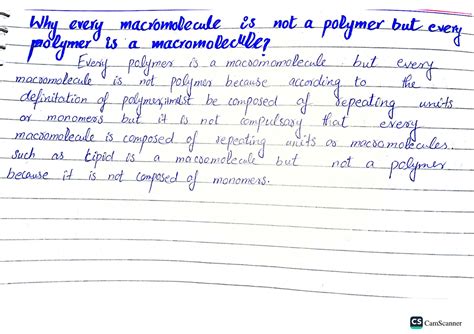 Why every macromolecule is not a polymer but every
polymer is a macromolecule?
Every polymer is a macromolecule but every
macromolecule is not polymer because according to the
definitation of polymer, must be composed of repeating units
or monomers but it is not compulsory that every
macromolecule is composed of repeating units or macromolecules.
such as Lipid is a macromolecule but not a polymer
because it is not composed of monomers.
CS CamScanner